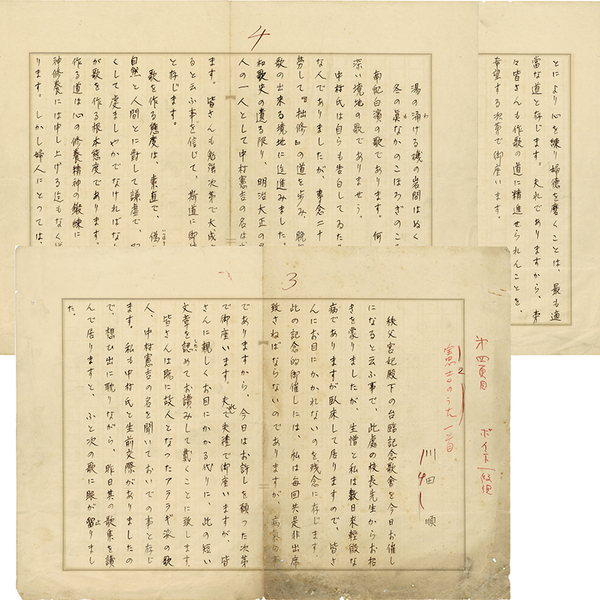 3
第四頁目
憲吉のうた
川田 順
秩父宮妃殿下の台臨記念歌會を今日お催し
になると云ふ事で、此處の校長先生からお招
きを蒙りましたが、生憎と私は数日來軽微な
病でありますが臥床して居りますので、皆さ
んにお目にかかれないのを残念に存じます。
此の記念的御催しには、私は毎回共是非出席
致さねばならないのでありますが、病氣の
でありますから、今日はお許しを願つた次第
で御座います。夫れで失禮で御座いますが、皆
さんに親しくお目にかかる代りに、此の短い
文章を認めてお讀みして戴くことに致します。
皆さんは既に故人となつたアララギ派の歌
人、中村憲吉の名を聞いておいでの事と存じ
ます。私も中村氏と生前交際がありましたの
で、想ひ出に耽りながら、昨日其の歌集を讀
んで居りますと、ふと次の歌に眼が留りまし
た。
4
湯の湧ける磯の岩間はぬく
冬の眞なかのこほろぎのこ
南紀白濱の歌であります。何
深い境地の歌でありませう。
中村氏は自らも告白してゐた
な人でありましたが、専念二十
勞して『拙修』の道を歩み、統
歌の出來る境地に迄進みました。
和歌史の遺る限り、明治大正の
人の一人として中村憲吉の名は
ます。皆さんも勉強次第で大成
ると云ふ事を信じて、斯道に御
と存じます。
歌を作る態度は、素直で、僞
自然と人間とに對して謙虚で、
くして虔ましやかでなければな
が歌を作る根本態度であります。
作る道は心の修養精神の鍛練に
神修養には申し上げる迄もなく
ります。しかし婦人にとつては、
とにより心を練り婦徳を磨くことは、最も適
當な道と存じます。夫れでありますから、夢
々皆さんも作歌の道に精進せられんことを、
希望する次第で御座います。